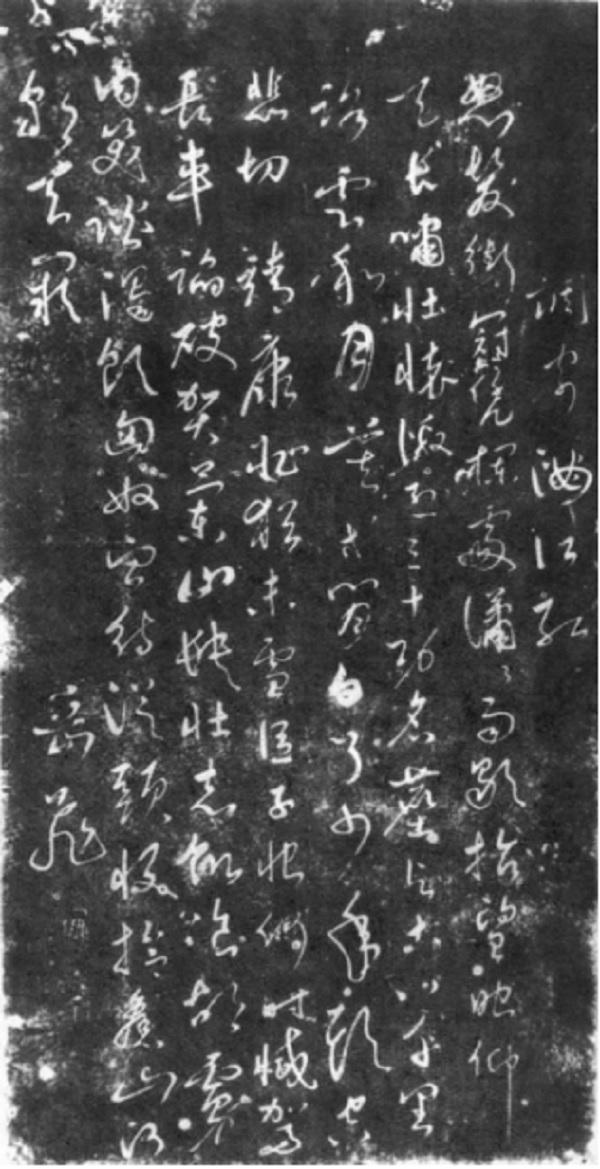 調寄滿江紅
怒髮衝冠凭欄處瀟瀟雨歇抬望眼仰
天長嘯壯懷激烈三十功名塵與土八千里
路雲和月莫等閒白了少年頭空
悲切 靖康恥猶未雪臣子恨何時滅駕
長車踏破賀蘭山缺壯志飢餐胡虜
肉笑談渴飲匈奴血待從頭收拾舊山河
朝天闕 岳飛